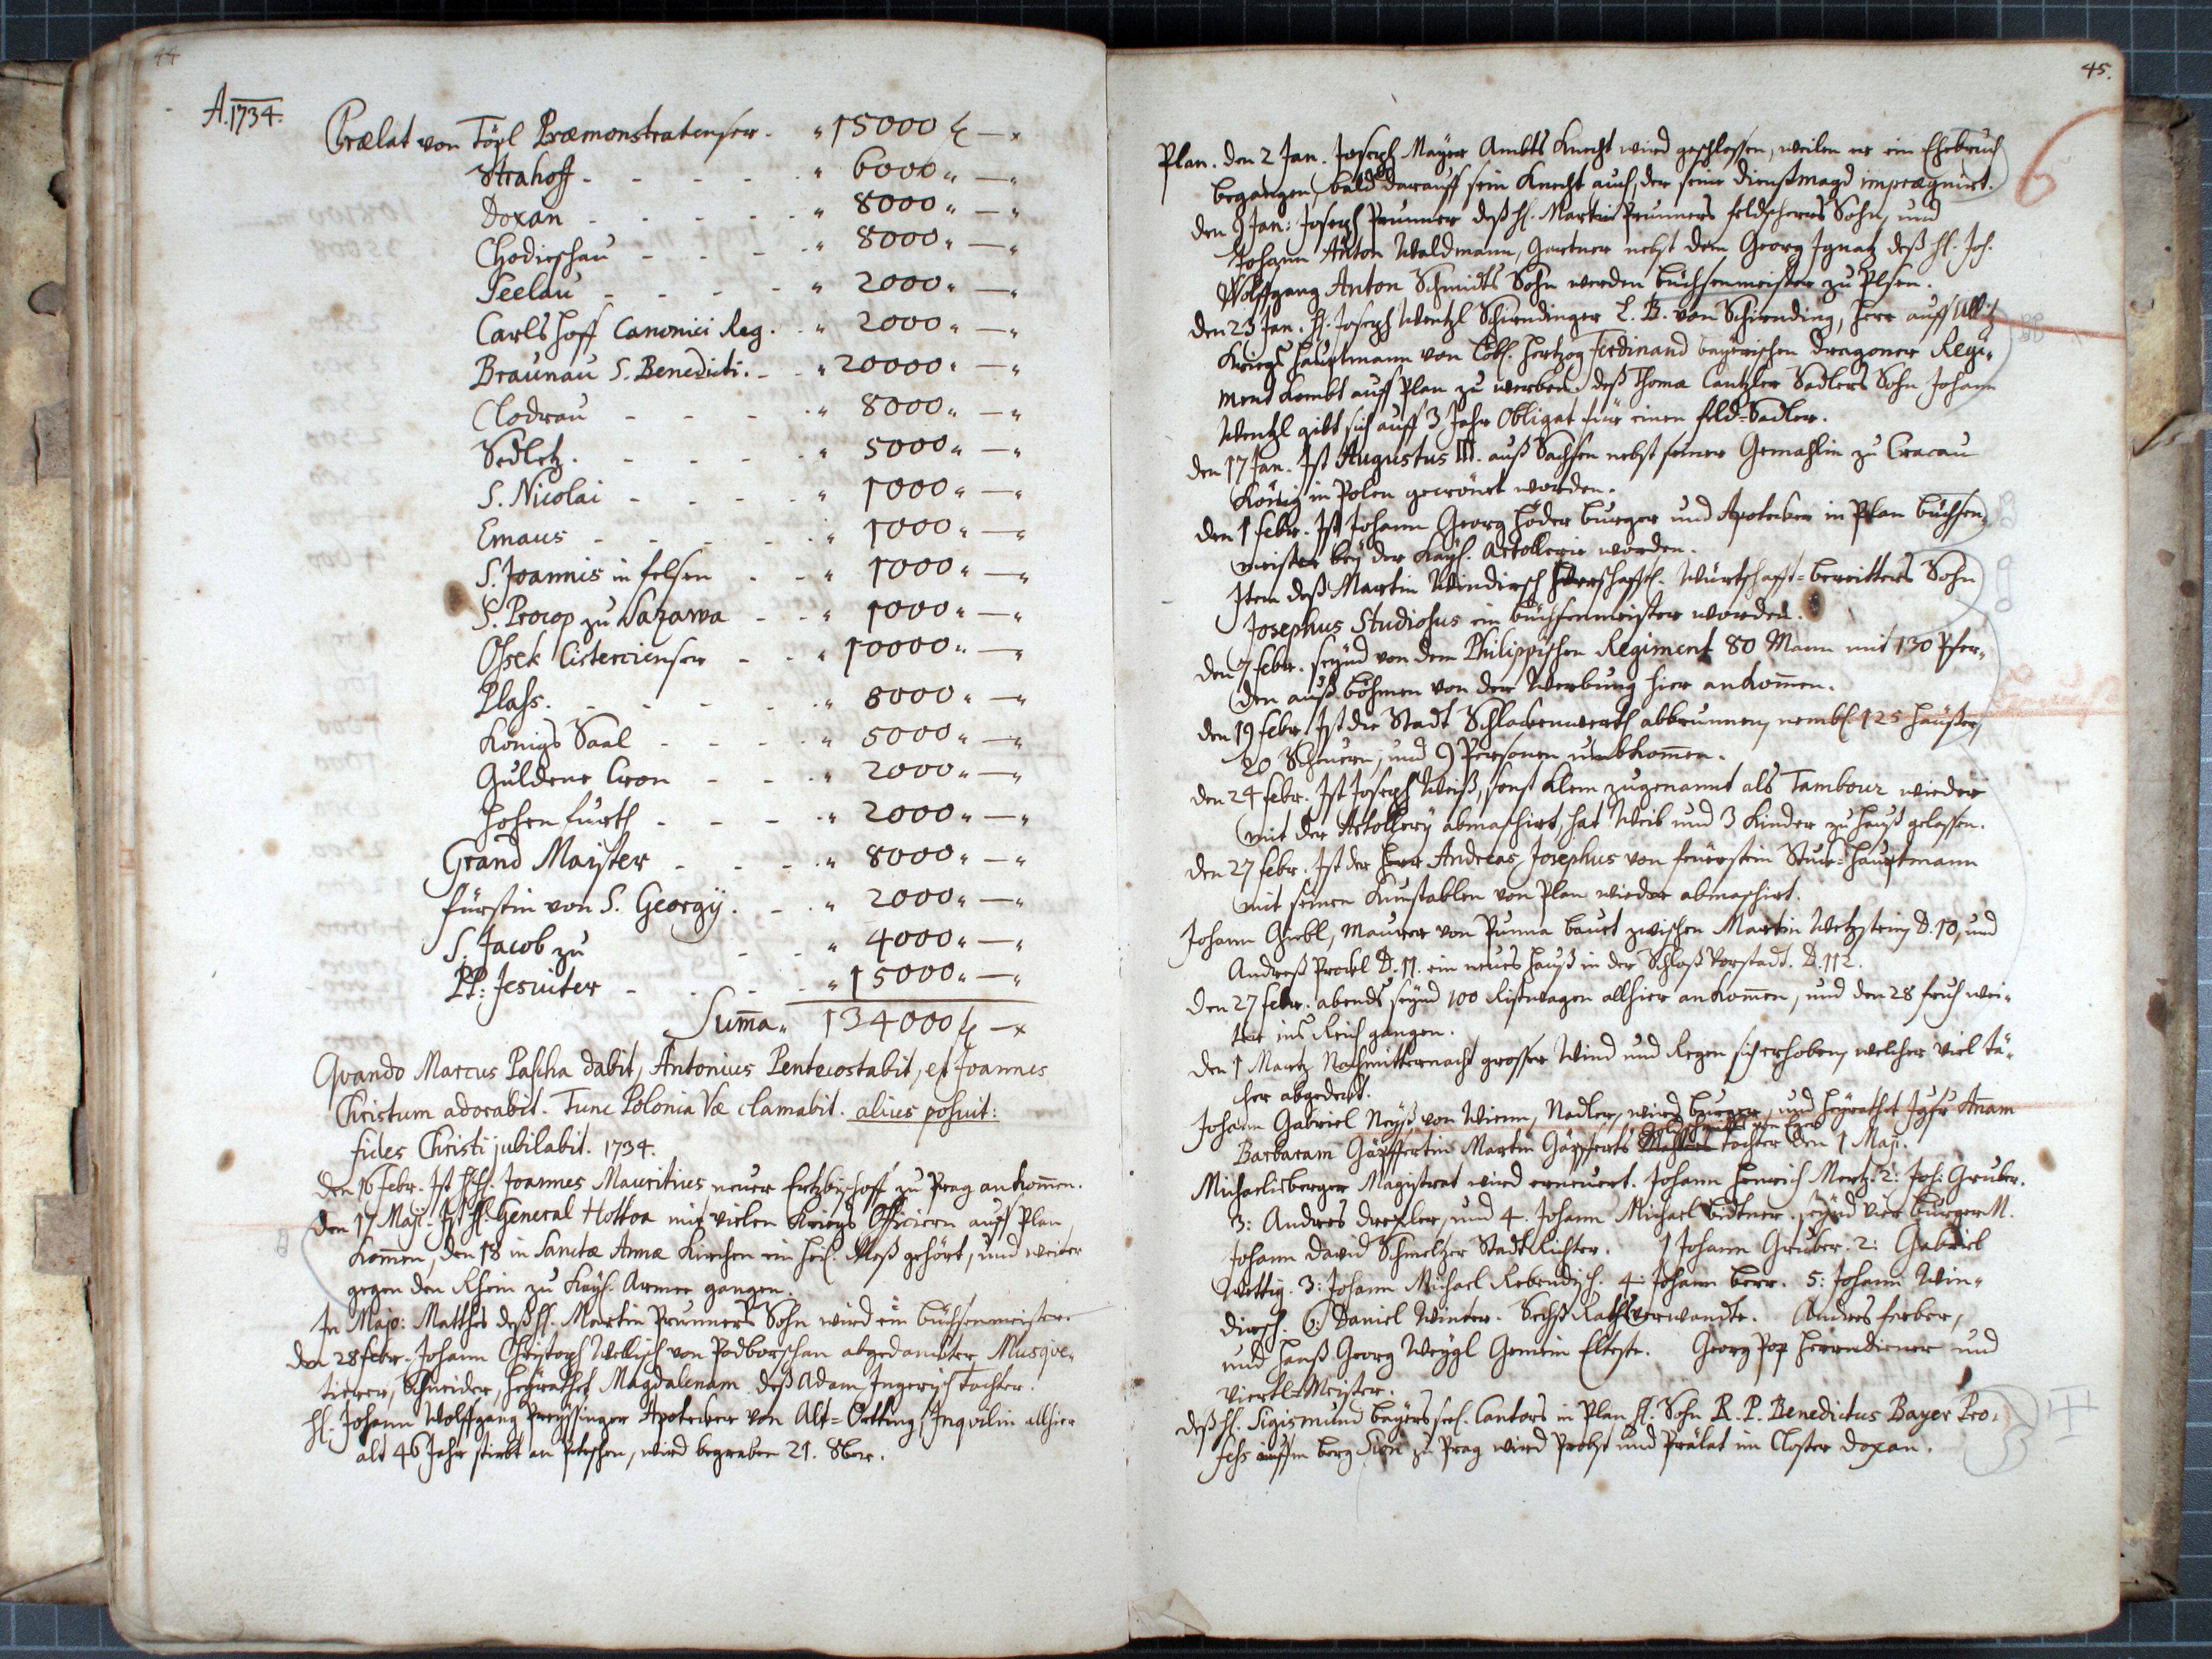 44
A. 1734.
Prælat von Töpl Præmonstratenser. " 15000 f — x
Strahoff - - - " 6000 " — "
Doxan - - - " 8000 " — "
Chodieschau - - - " 8000 " — "
Seelau - - - " 2000 " — "
Carlshoff Canonici Reg. " 2000 " — "
Braunau S. Benedicti. - " 20000 " — "
Clodrau - - - " 8000 " — "
Sedletz. - - - " 5000 " — "
S. Nicolai - - - " 1000 " — "
Emaus - - - " 1000 " — "
S. Joannis in felsen - - " 1000 " — "
S. Procop zu Sazawa - - " 1000 " — "
Ossek Cistercienser - - " 10000 " — "
Plass. - - - " 8000 " — "
Königs Saal - - - " 5000 " — "
Guldene Cron - - " 2000 " — "
Hohenfurth - - - " 2000 " — "
Grand Mayster - - - " 8000 " — "
Fürstin von S. Georgÿ. - - " 2000 " — "
S. Jacob zu - - " 4000 " — "
PP: Jesuiter - - - " 15000 " — "
Suma " 134000 f — x
Quando Marcus Pascha dabit, Antonius Pentecostabit, et Joannes
Christum adorabit. Tunc Polonia Væ clamabit. alius posuit:
fides Christi jubilabit. 1734.
Den 16 Febr. Ist Joannes Mauritius neuer Ertzbischoff zu Prag ankomen.
Den 17 Maji. Ist H. General mit vielen Kriegs Officiern auff Plan
komen, den 18 in Sanctæ Annæ Kirchen ein heil. Meß gehört, und weiter
gegen den Rhein zu Kaÿs. Armee gangen.
In Majo: Matthes deß H. Martin Prunners Sohn wird ein büchsenmeister.
Den 28 Febr. Johann Christoph Wellisch von Podborschan abgedanckter Musque-
tierer, Schneider, heÿrathet Magdalenam deß Adam Ingerisch Tochter.
H: Johann Wolffgang Preÿssinger Apotecker von Alt-Oetting, Inquilin allhier
alt 46 Jahr stirbt an Peteschen, wird begraben 21. 8ber.
45.
6
Plan. Den 2 Jan. Joseph Mayer Ambts Knecht wird geschlossen, weilen er ein Ehebruch
begangen, bald darauff sein Knecht auch, der seine Dienstmagd imprægnirt.
Den 9 Jan: Joseph Prunner deß H. Martin Prunners Feldscherrs Sohn, und
Johann Anton Waldmann, Gartner nebst dem Georg Ignatz deß H. Joh.
Wolffgang Anton Schmidts Sohn werden büchsenmeister zu Plsen.
Den 23 Jan. H. Joseph Wentzl Schirndinger L. B. von Schirnding, Herr auff
Kriegs Hauptmann von Löbl. Hertzog Ferdinand bayrischen Dragoner Regi-
ment kombt auff Plan zu werben. deß Thoma Cantzler Sadlers Sohn Johann
Wentzl gibt sich auff 3 Jahr Obligat für einen Feld-Sadler.
Den 17 Jan. Ist Augustus III. auß Sachsen nebst seiner Gemahlin zu Cracau
König in Polen gecrönet worden.
Den 1 Febr. Ist Johann Georg Höder burger und Apotecker in Plan büchsen-
meister beÿ der Kaÿs. Artollerie worden.
Item deß Martin Windirsch Herschafftl. Würtschafft-bereitters Sohn
Josephus Studiosus ein büchsenmeister worden.
Den 7 Febr. seÿnd von dem Philippischen Regiment 80 Mann mit 130 Pfer-
den auß böhmen von der Werbung hier ankomen.
Den 19 Febr. Ist die Stadt Schlackenwerth abbrunnen, nembl. 125 Häußer,
20 Scheuern, und 9 Personen umbkomen.
Den 24 Febr. Ist Joseph Weiß, sonst Klem zugenannt als Tambour wieder
mit der Artollerÿ abmaschirt, hat Weib und 3 Kinder zu Hauß gelassen.
Den 27 Febr. Ist der Herr Andreas Josephus von Feuerstein Stuck-Hauptmann
mit seinen Kunstablen von Plan wieder abmaschirt.
Johann Giebl, Maurer von Punna bauet zwischen Martin Wetzstein D. 10, und
Andreß Prockl D. 11. ein neues Hauß in der Schloß Vorstadt. D. 112.
Den 27 Febr. abends seÿnd 100 Ristwagen allhier ankomen, und den 28 fruh wei-
ter ins Reich gangen.
Den 1 Martz Nachmitternacht grosser Wind und Regen sich erhoben, welcher viel Tä-
cher abgedeckt.
Johann Gabriel Neÿß von Wienn, Nadler, wird burger, und heÿrathet Jgfr Annam
Barbaram Güpffertin Martin Güpfferts Tochter den 1 Maji.
Michaelsberger Magistrat wird erneuert. Johann Henrich Mertz. 2: Joh: Gruber.
3: Andres Drexler, und 4. Johann Michael bidtner. seÿnd vier burger M.
Johann David Schmeltzer Stadt Richter. 1 Johann Gruber. 2: Gabriel
Wettig. 3: Johann Michael Rebendisch. 4: Johann berr. 5: Johann Win-
dirsch. 6: Daniel Winter. Sechß Rathsverwandte. Andres Ferber,
und Hanß Georg Weÿgl Gemein Elteste. Georg Pop Herrndiener und
Viertl-Meister.
Deß H. Sigismund bayers seel. Cantors in Plan H. Sohn R. P. Benedictus Bayer Pro-
fess auffm berg Sion zu Prag wird Probst und Prälat im Closter Doxan.